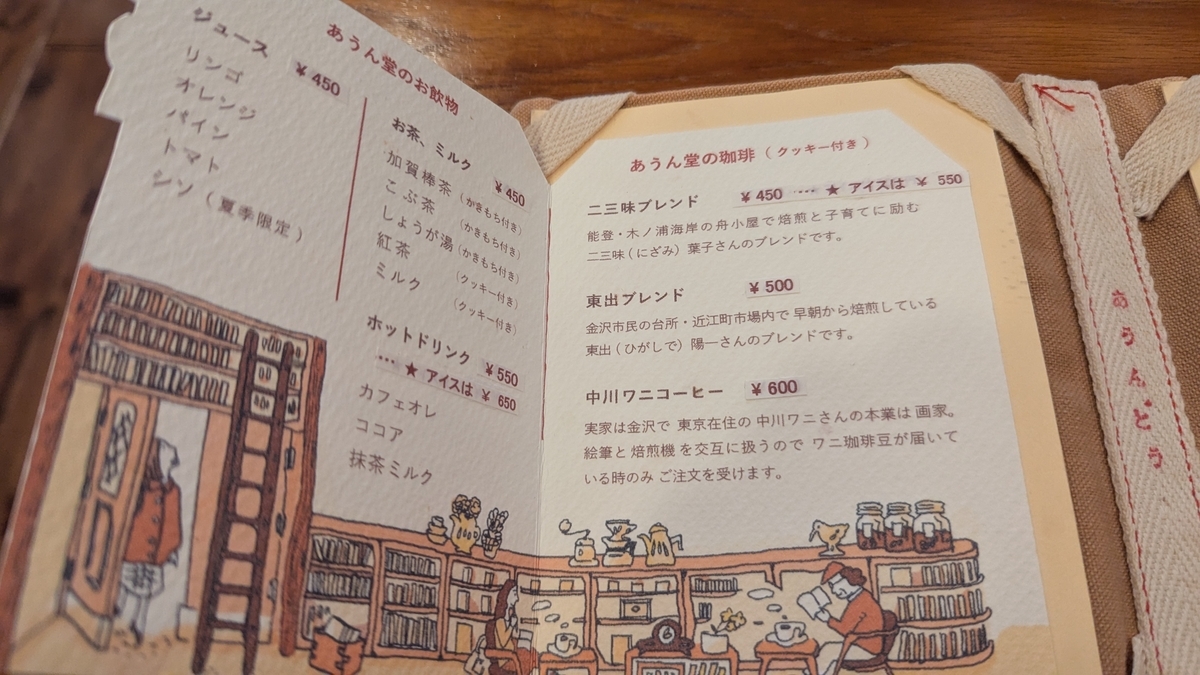 ジュース ¥450
リンゴ
オレンジ
パイン
トマト
シソ（夏季限定）
あうん堂のお飲物
お茶、ミルク ¥450
加賀棒茶（かきもち付き）
こぶ茶（かきもち付き）
しょうが湯（かきもち付き）
紅茶（クッキー付き）
ミルク（クッキー付き）
ホットドリンク ¥550
… ★ アイスは ¥650
カフェオレ
ココア
抹茶ミルク
あうん堂の珈琲（クッキー付き）
二三味ブレンド ¥450 … ★ アイスは ¥550
能登・木ノ浦海岸の舟小屋で焙煎と子育てに励む
二三味（にざみ）葉子さんのブレンドです。
東出ブレンド ¥500
金沢市民の台所・近江町市場内で 早朝から焙煎している
東出（ひがしで）陽一さんのブレンドです。
中川ワニコーヒー ¥600
実家は金沢で 東京在住の 中川ワニさんの本業は 画家。
絵筆と 焙煎機 を交互に扱うので ワニ珈琲豆が届いて
いる時のみ ご注文を受けます。
あうんどう